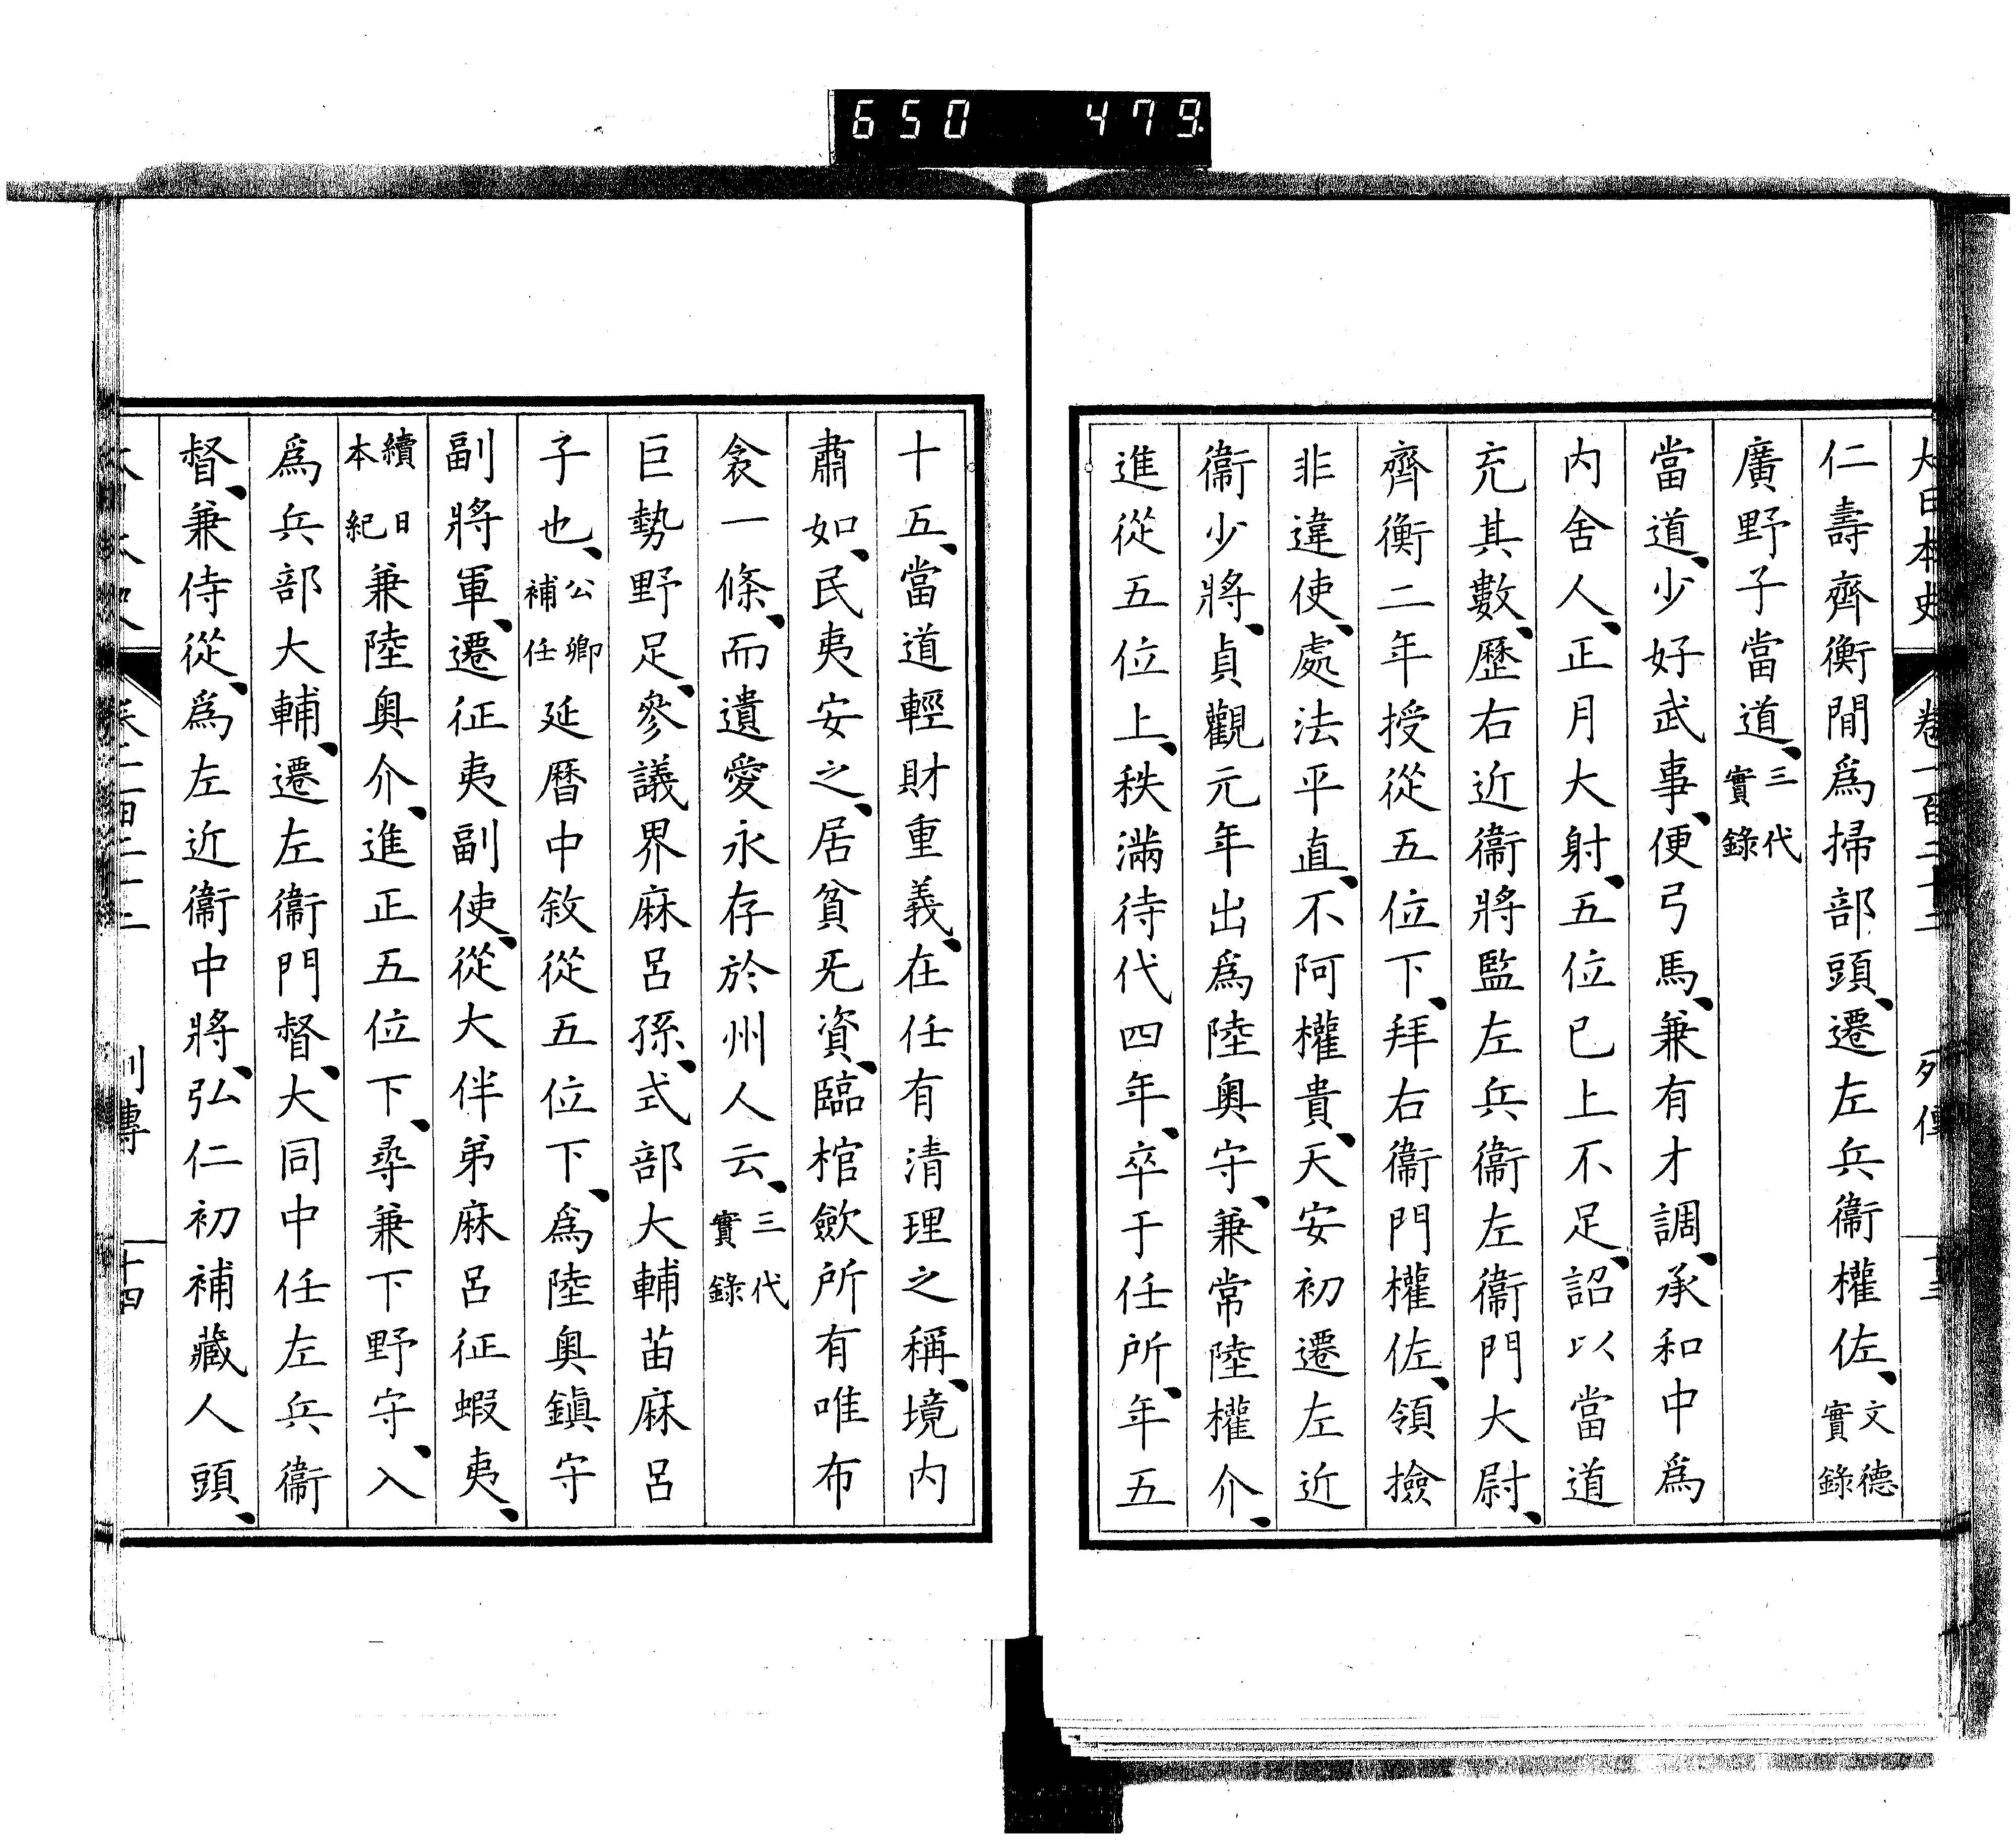 650 479
大日本史 卷一百二十二 列傳 十三
仁壽齊衡間爲掃部頭、遷左兵衞權佐、文德實錄
廣野子當道、三代實錄
當道、少好武事、便弓馬、兼有才調、承和中爲
内舍人、正月大射、五位已上不足、詔以當道
充其數、歷右近衞將監左兵衞左衞門大尉、
齊衡二年授從五位下、拜右衞門權佐、領撿
非違使、處法平直、不阿權貴、天安初遷左近
衞少將、貞觀元年出爲陸奥守、兼常陸權介、
進從五位上、秩滿待代四年、卒于任所、年五
十五、當道輕財重義、在任有清理之稱、境内
肅如、民夷安之、居貧无資、臨棺歛所有唯布
衾一條、而遺愛永存於州人云、三代實錄
巨勢野足、參議界麻呂孫、式部大輔苗麻呂
子也、公卿補任延曆中敘從五位下、爲陸奥鎭守
副將軍、遷征夷副使、從大伴弟麻呂征蝦夷、
續日本紀兼陸奥介、進正五位下、尋兼下野守、入
爲兵部大輔、遷左衞門督、大同中任左兵衞
督、兼侍從、爲左近衞中將、弘仁初補藏人頭、
列傳 十四